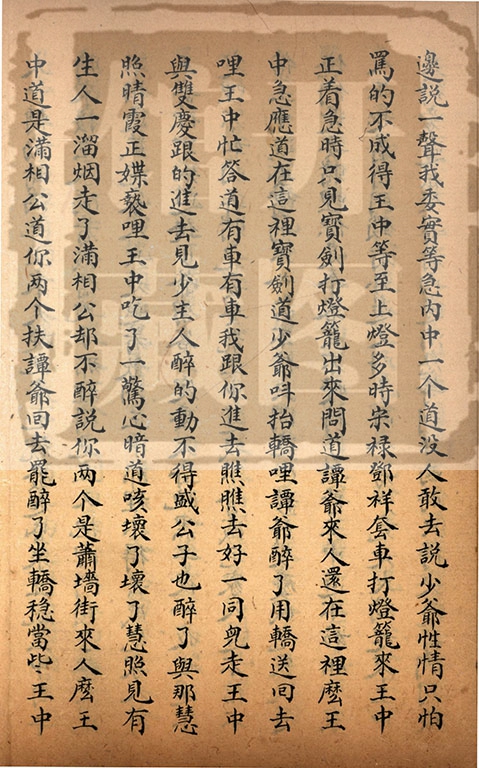 邊説一聲我委實等急内中一个道没人敢去説少爺性情只怕
罵的不成得王中等至上燈多時宋禄鄧祥套車打燈籠來王中
正着急時只見寳劍打燈籠出來問道譚爺來人還在這裡麽王
中急應道在這裡寳劍道少爺呌抬轎哩譚爺醉了用轎送囘去
哩王中忙答道有車有車我跟你進去瞧瞧去好一同兒走王中
與雙慶跟的進去見少主人醉的動不得盛公子也醉了與那慧
照晴霞正媟褻哩王中吃了一驚心暗道咳壞了壞了慧照見有
生人一溜烟走了滿相公却不醉説你两个是蕭墻街來人麽王
中道是滿相公道你两个扶譚爺囘去罷醉了坐轎穏當些王中